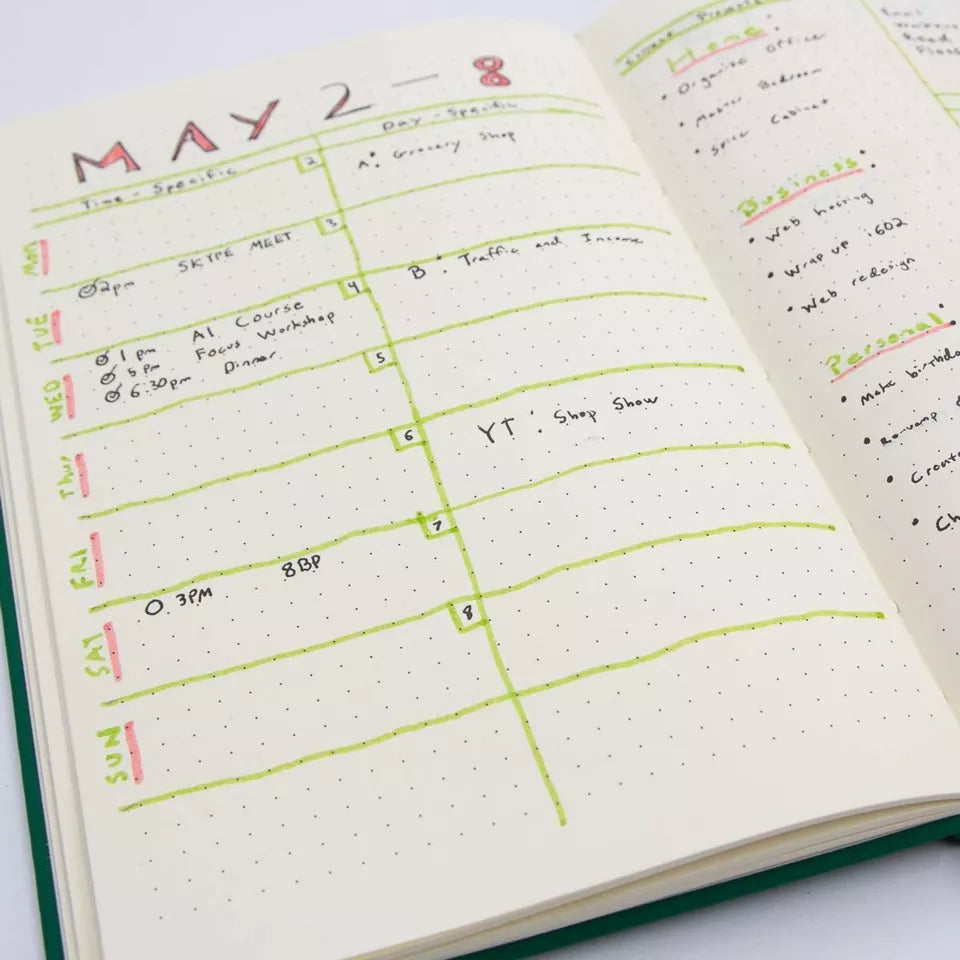 MAY 2 - 8
Time - Specific
Day - Specific
Mon
2
A: Grocery Shop
TUE
3
@2pm SKYPE MEET
B: Traffic and Income
WED
4
@ 1 pm AI Course
@ 5 pm Focus Workshop
@ 6:30pm Dinner
Thur
5
FRI
6
YT: Shop Show
SAT
7
O. 3PM 8BP
SUN
8
Home
• Organize Office
• Master Bedroom
• Spice Cabinet
Business
• Web hosting
• Wrap up i602
• Web redesign
Personal
• Make birthda
• Revamp
• Create
• Ch
Read